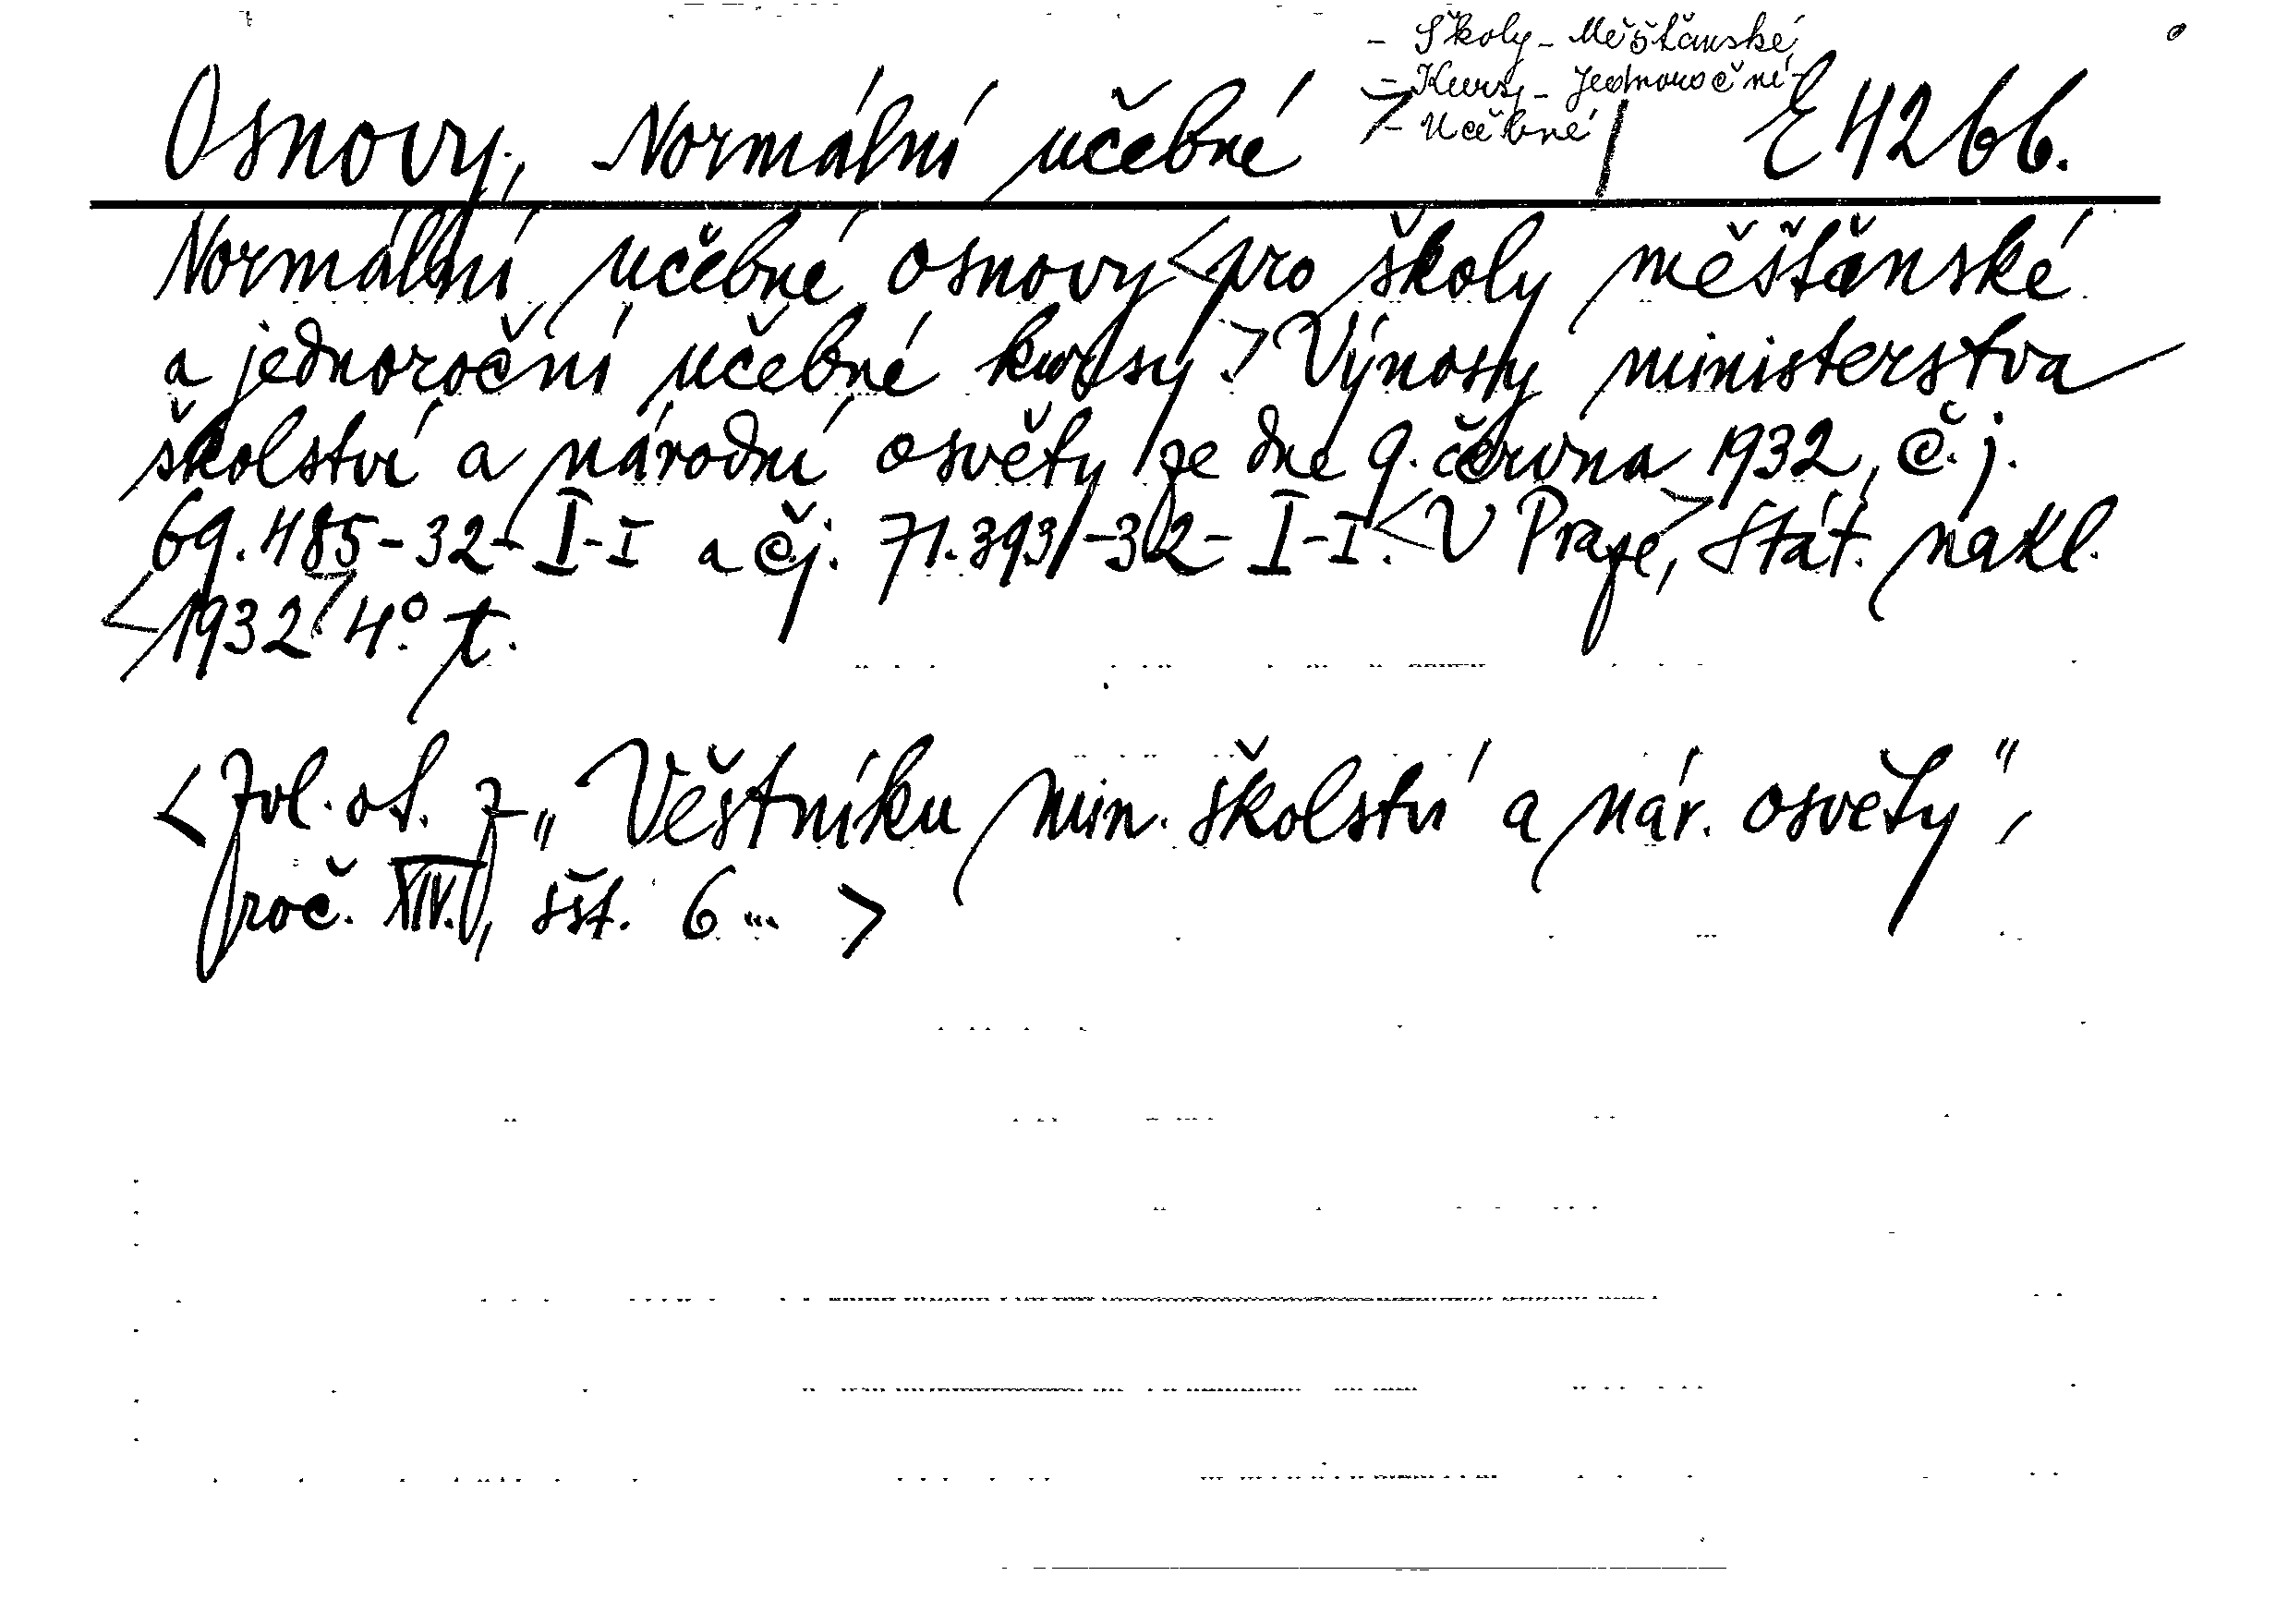 - Školy - Měšťanské
- Kursy - Jednoroční -
- Učebné
Osnovy, Normální učebné E 4266.
Normální učebné osnovy <pro školy měšťanské
a jednoroční učebné kursy.> Výnosy ministerstva
školství a národní osvěty ze dne 9. června 1932, č. j.
69.485-32-I-I a čj. 71.393-32-I-I. <V Praze,> Stát. nakl.
<1932> 4°. t.
<Zvl. ot. z „Věstníku min. školství a nár. osvěty",
roč. XIV., seš. 6 ... >